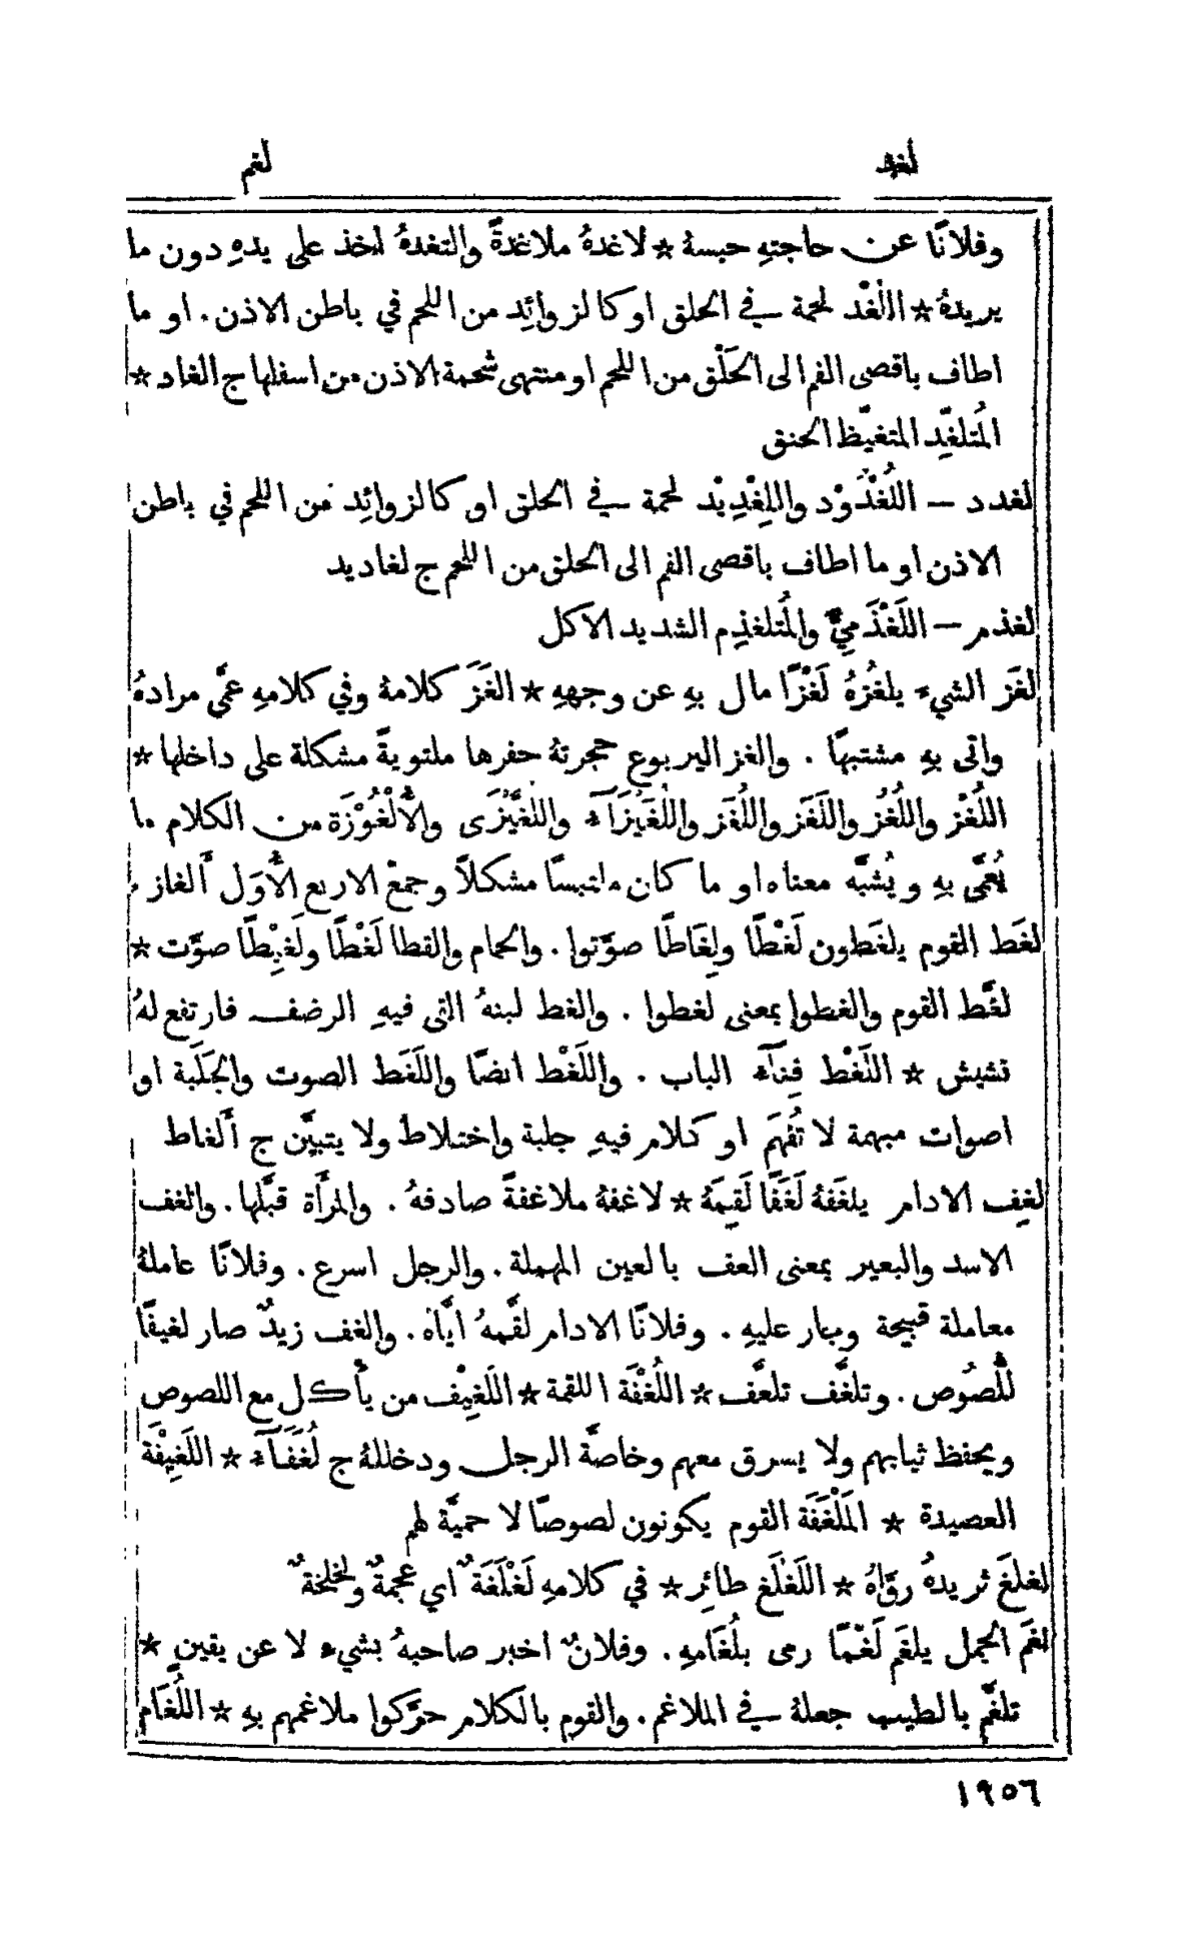 لغد
لغم
وفلانًا عن حاجتهِ حبسهُ * لاغدهُ ملاغدةً والتغدهُ اخذ على يدهِ دون ما
يريدهُ * اللُغْد لحمة في الحلق او كالزوائِد من اللحم في باطن الاذن. او ما
اطاف باقصى الفم الى الحَلْق من اللحم او منتهى شحمة الاذن من اسفلها ج الغاد *
المُتلغِّد المتغيّظ الحنق
لغدد – اللُغْدُوْد واللِغْدِيْد لحمة في الحلق او كالزوائِد من اللحم في باطن
الاذن او ما اطاف باقصى الفم الى الحلق من اللحم ج لغاديد
لغذمر – اللَغْذَمِيّ والمُتلغذِم الشديد الاكل
لغَز الشيء يلغُزهُ لَغْزًا مال بهِ عن وجههِ * الغَزَ كلامهُ وفي كلامهِ عمَّى مرادهُ
واتى بهِ مشتبهًا . والغز اليربوع حجرتهُ حفرها ملتويةً مشكلة على داخلها *
اللُغْز واللُغُز واللَغَز واللُغَز واللُغَيْزَآء واللُغَّيْزَى والأُلْغُوْزَة من الكلام ما
يُعمَّى بهِ ويُشبَّه معناه او ما كان ملتبسًا مشكلاً وجمعْ الاربع الأُوَل ألغاز
لغَط القوم يلغَطون لَغْطًا ولِغَاطًا صوَّتوا . والحمام والقطا لَغْطًا ولَغِيْطًا صوَّت *
لغَّط القوم والغطوا بمعنى لغطوا . والغط لبنهُ التى فيهِ الرضف فارتفع لهُ
نشيش * اللَغْط فِنَآء الباب . واللَغْط ايضًا واللَغَط الصوت والجَلَبة او
اصوات مبهمة لا تُفهَم او كلام فيهِ جلبة واختلاط ولا يتبيَّن ج ألغاط
لغِف الادام يلغَفهُ لَغَفًا لَقِمَهُ * لاغفهُ ملاغفةً صادقهُ . والمرأة قبَّلها . والغف
الاسد والبعير بمعنى العف بالعين المهملة . والرجل اسرع . وفلانًا عاملهُ
معاملة قبيحة وجار عليهِ . وفلانًا الادام لقَّمهُ ايَّاه . والغف زيدٌ صار لغيفًا
للُّصُوص . وتلغَّف تلعَّف * اللُغْفَة اللقمة * اللَغِيْف من يأكل مع اللصوص
ويحفظ ثيابهم ولا يسرق معهم وخاصَّة الرجل ودخللهُ ج لُغَفَآء * اللَغِيْفَة
العصيدة * المَلْغَفَة القوم يكونون لصوصًا لا حميَّة لهم
لغلغَ ثريدهُ روَّاهُ * اللَغْلَغ طائِر * في كلامهِ لَغْلَغَةٌ اي عجمةٌ ولخلخةٌ
لغَم الجمل يلغَم لَغْمًا رمى بلُغَامهِ . وفلانٌ اخبر صاحبهُ بشيء لا عن يقين *
تلغَّم بالطيب جعلهُ في الملاغم . والقوم بالكلام حرَّكوا ملاغمهم بهِ * اللُّغَام
١٩٥٦